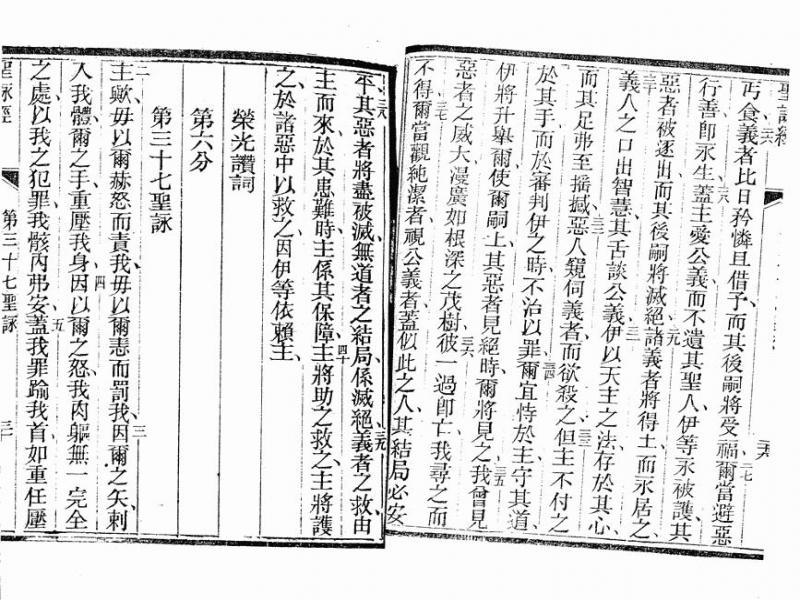 聖詠經
丐食義者比日矜憐且借予而其後嗣將受福爾當避惡
行善卽永生蓋主愛公義而不遺其聖人伊等永被護其
惡者被逐出而其後嗣將滅絕諸義者將得土而永居之
義人之口出智慧其舌談公義伊以天主之法存於其心
而其足弗至搖撼惡人窺伺義者而欲殺之但主不付之
於其手而於審判伊之時不治以罪爾宜恃於主守其道
伊將升舉爾使爾嗣土其惡者見絕時爾將見之我曾見
惡者之威大漫廣如根深之茂樹彼一過卽亡我尋之而
不得爾當觀純潔者視公義者蓋似此之人其結局必安
平其惡者將盡破滅無道者之結局係滅絕義者之救由
主而來於其患難時主係其保障主將助之救之主將護
之於諸惡中以救之因伊等依賴主
榮光讚詞
第六分
第三十七聖詠
主歟毋以爾赫怒而責我毋以爾恚而罰我因爾之矢刺
入我體爾之手重壓我身因以爾之怒我肉軀無一完全
之處以我之犯罪我骸內弗安蓋我罪踰我首如重任壓
聖詠經
第三十七聖詠